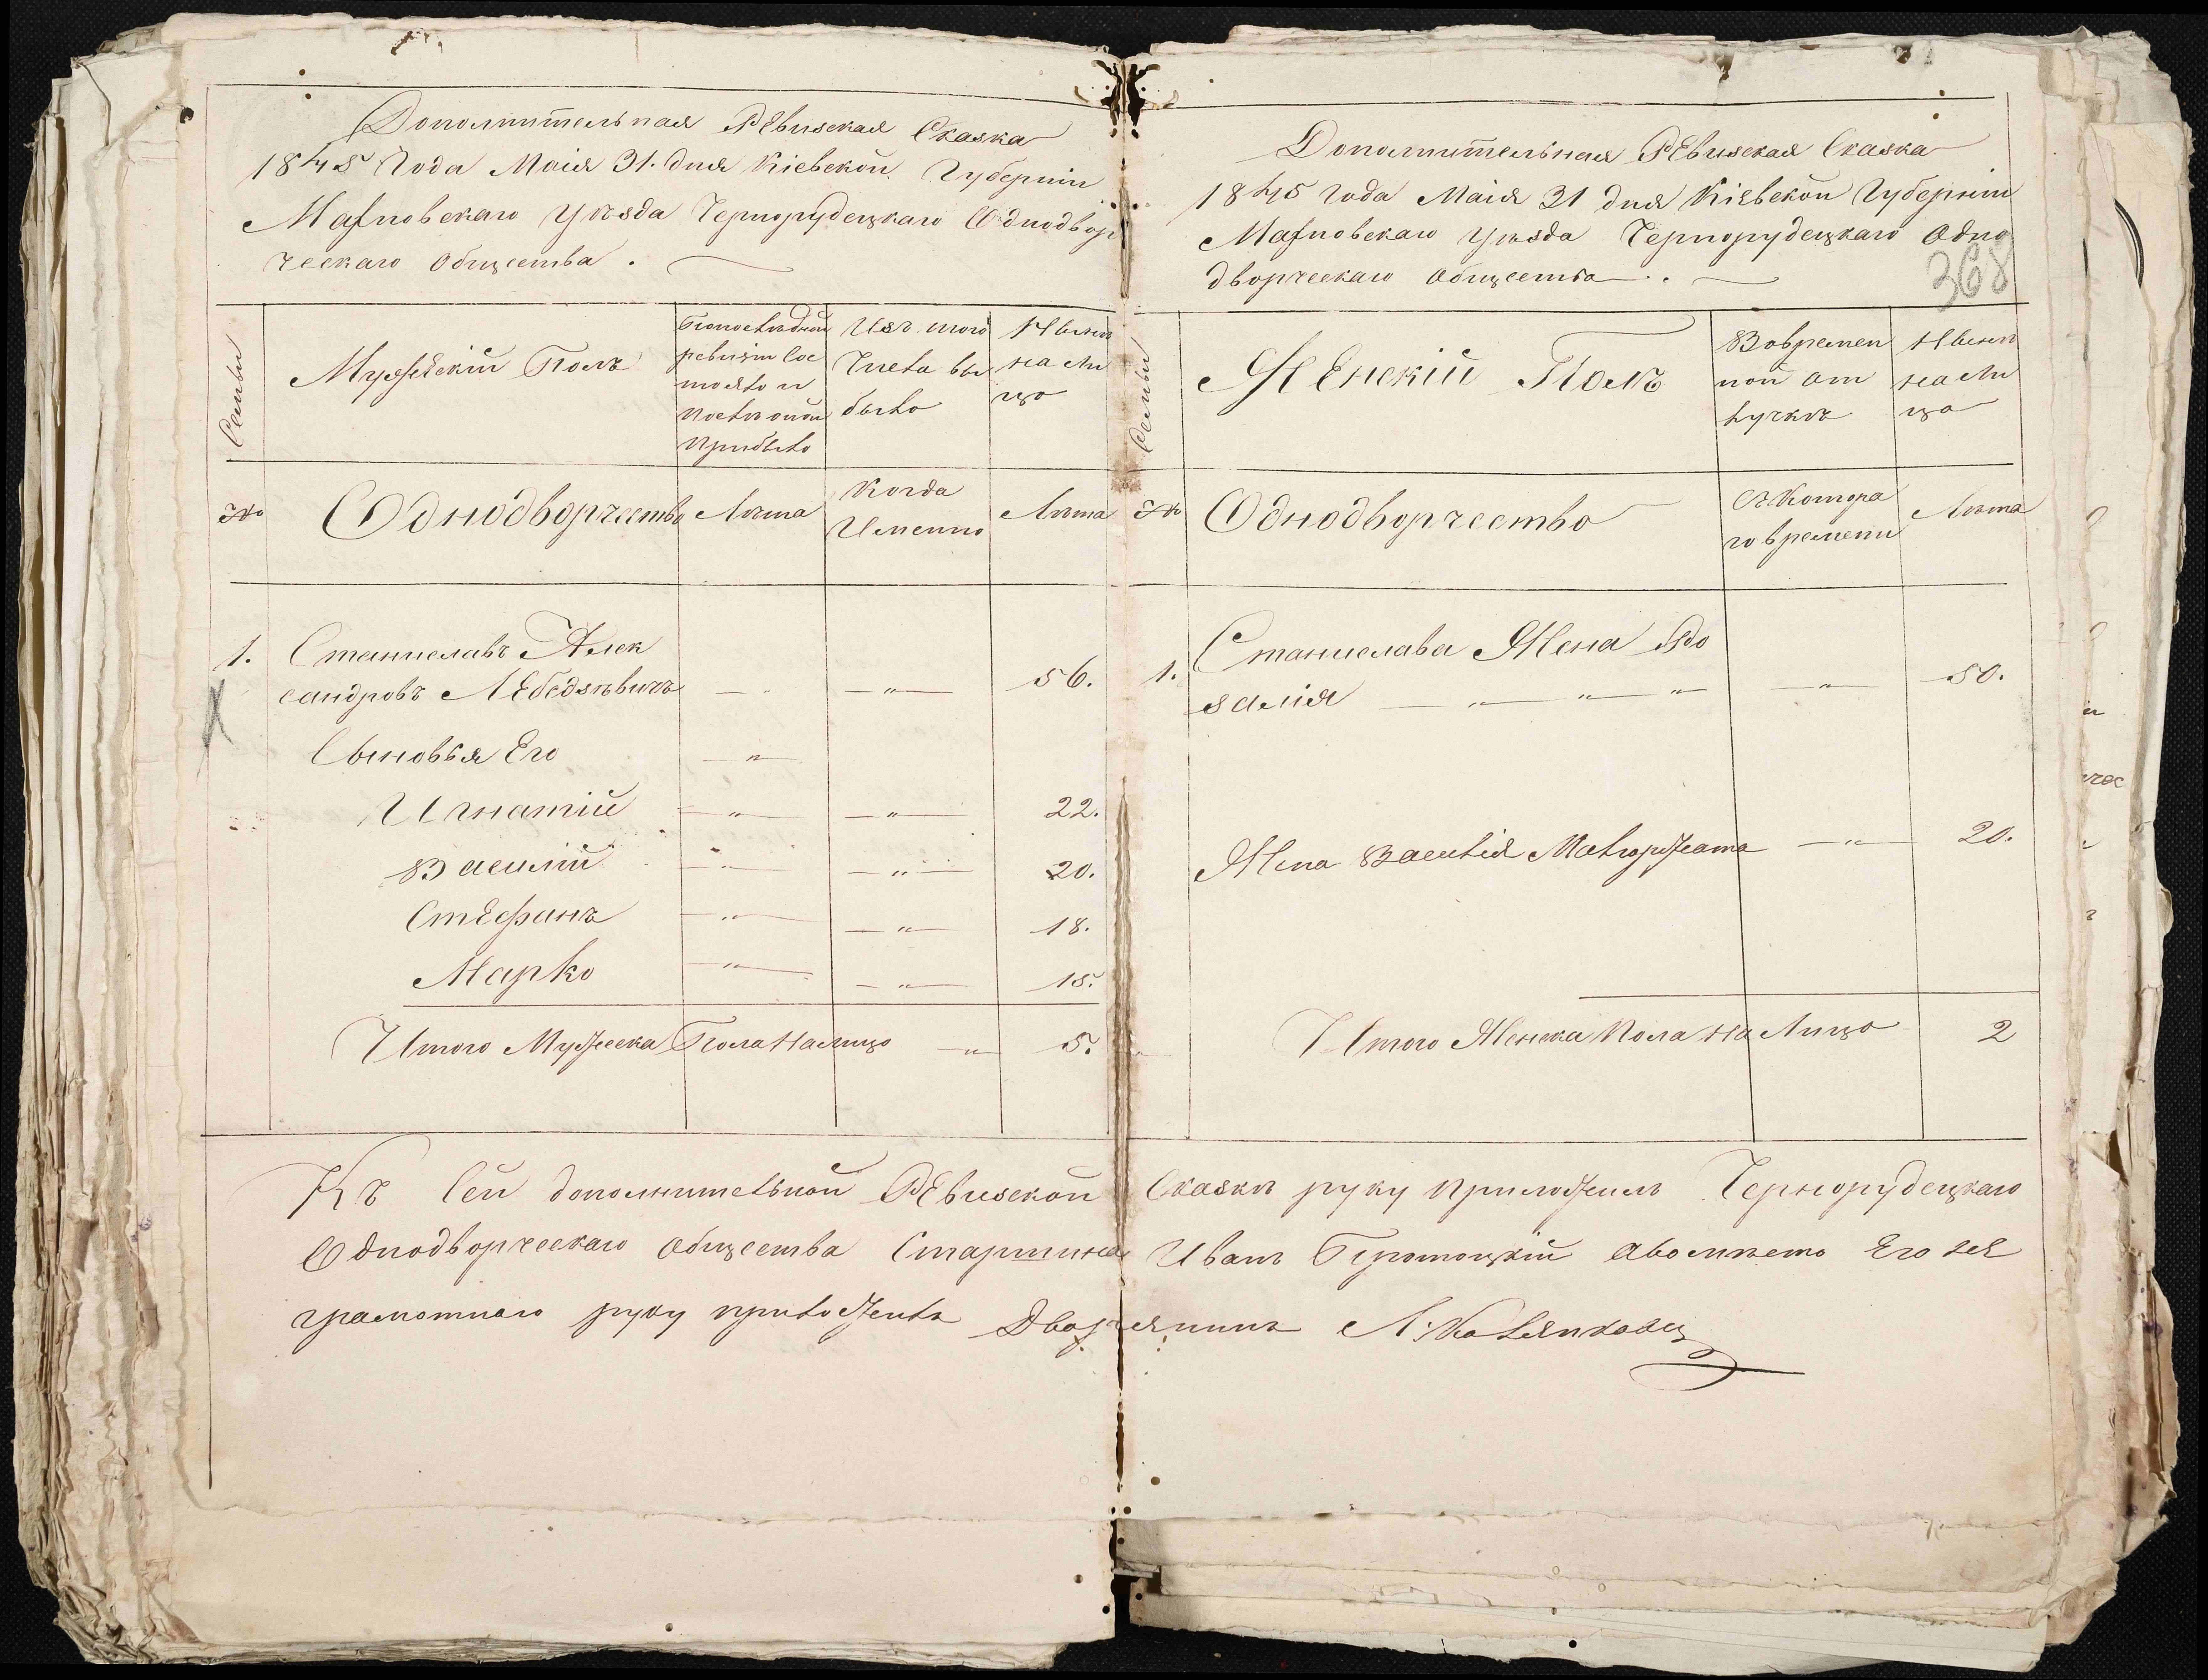 Дополнительная Ревизская Сказка
1845 Года Маія 31. дня Кіевской Губерніи
Махновскаго Уѣзда Чернорудецкаго Однодвор
ческаго Общества.
Семьи
Мужескій Полъ
По последной ревизіи Сос тояло и послѣ оной Прибыло
Изъ того Числа вы было
Нынѣ на Ли цо
№
Однодворчество
Лѣта
Когда Именно
Лѣта
1. Станиславъ Алек
сандровъ Лебедзѣвичъ 56.
Сыновья Его
Игнатій 22.
Василій 20.
Стефанъ 18.
Марко 15.
Итого Мужеска Пола На лицо 5.
Дополнительная Ревизская Сказка
1845 года Маія 31 дня Кіевской Губерніи
Махновскаго Уѣзда Чернорудецкаго Одно
дворческаго Общества.
368
Семьи
Женскій Полъ
Во времен ной от лучкѣ
Нынѣ на Ли цо
№
Однодворчество
Съ Котора го времени
Лѣта
1. Станислава Жена Ро
залія 50.
Жена Василія 20.
Итого Женска Пола на Лицо 2
Къ Сей дополнительной Ревизской Сказкѣ руку приложилъ Чернорудецкаго
Однодворческаго Общества Старшина Иванъ авомѣсто Его не
грамотнаго руку приложилъ Дворянинъ